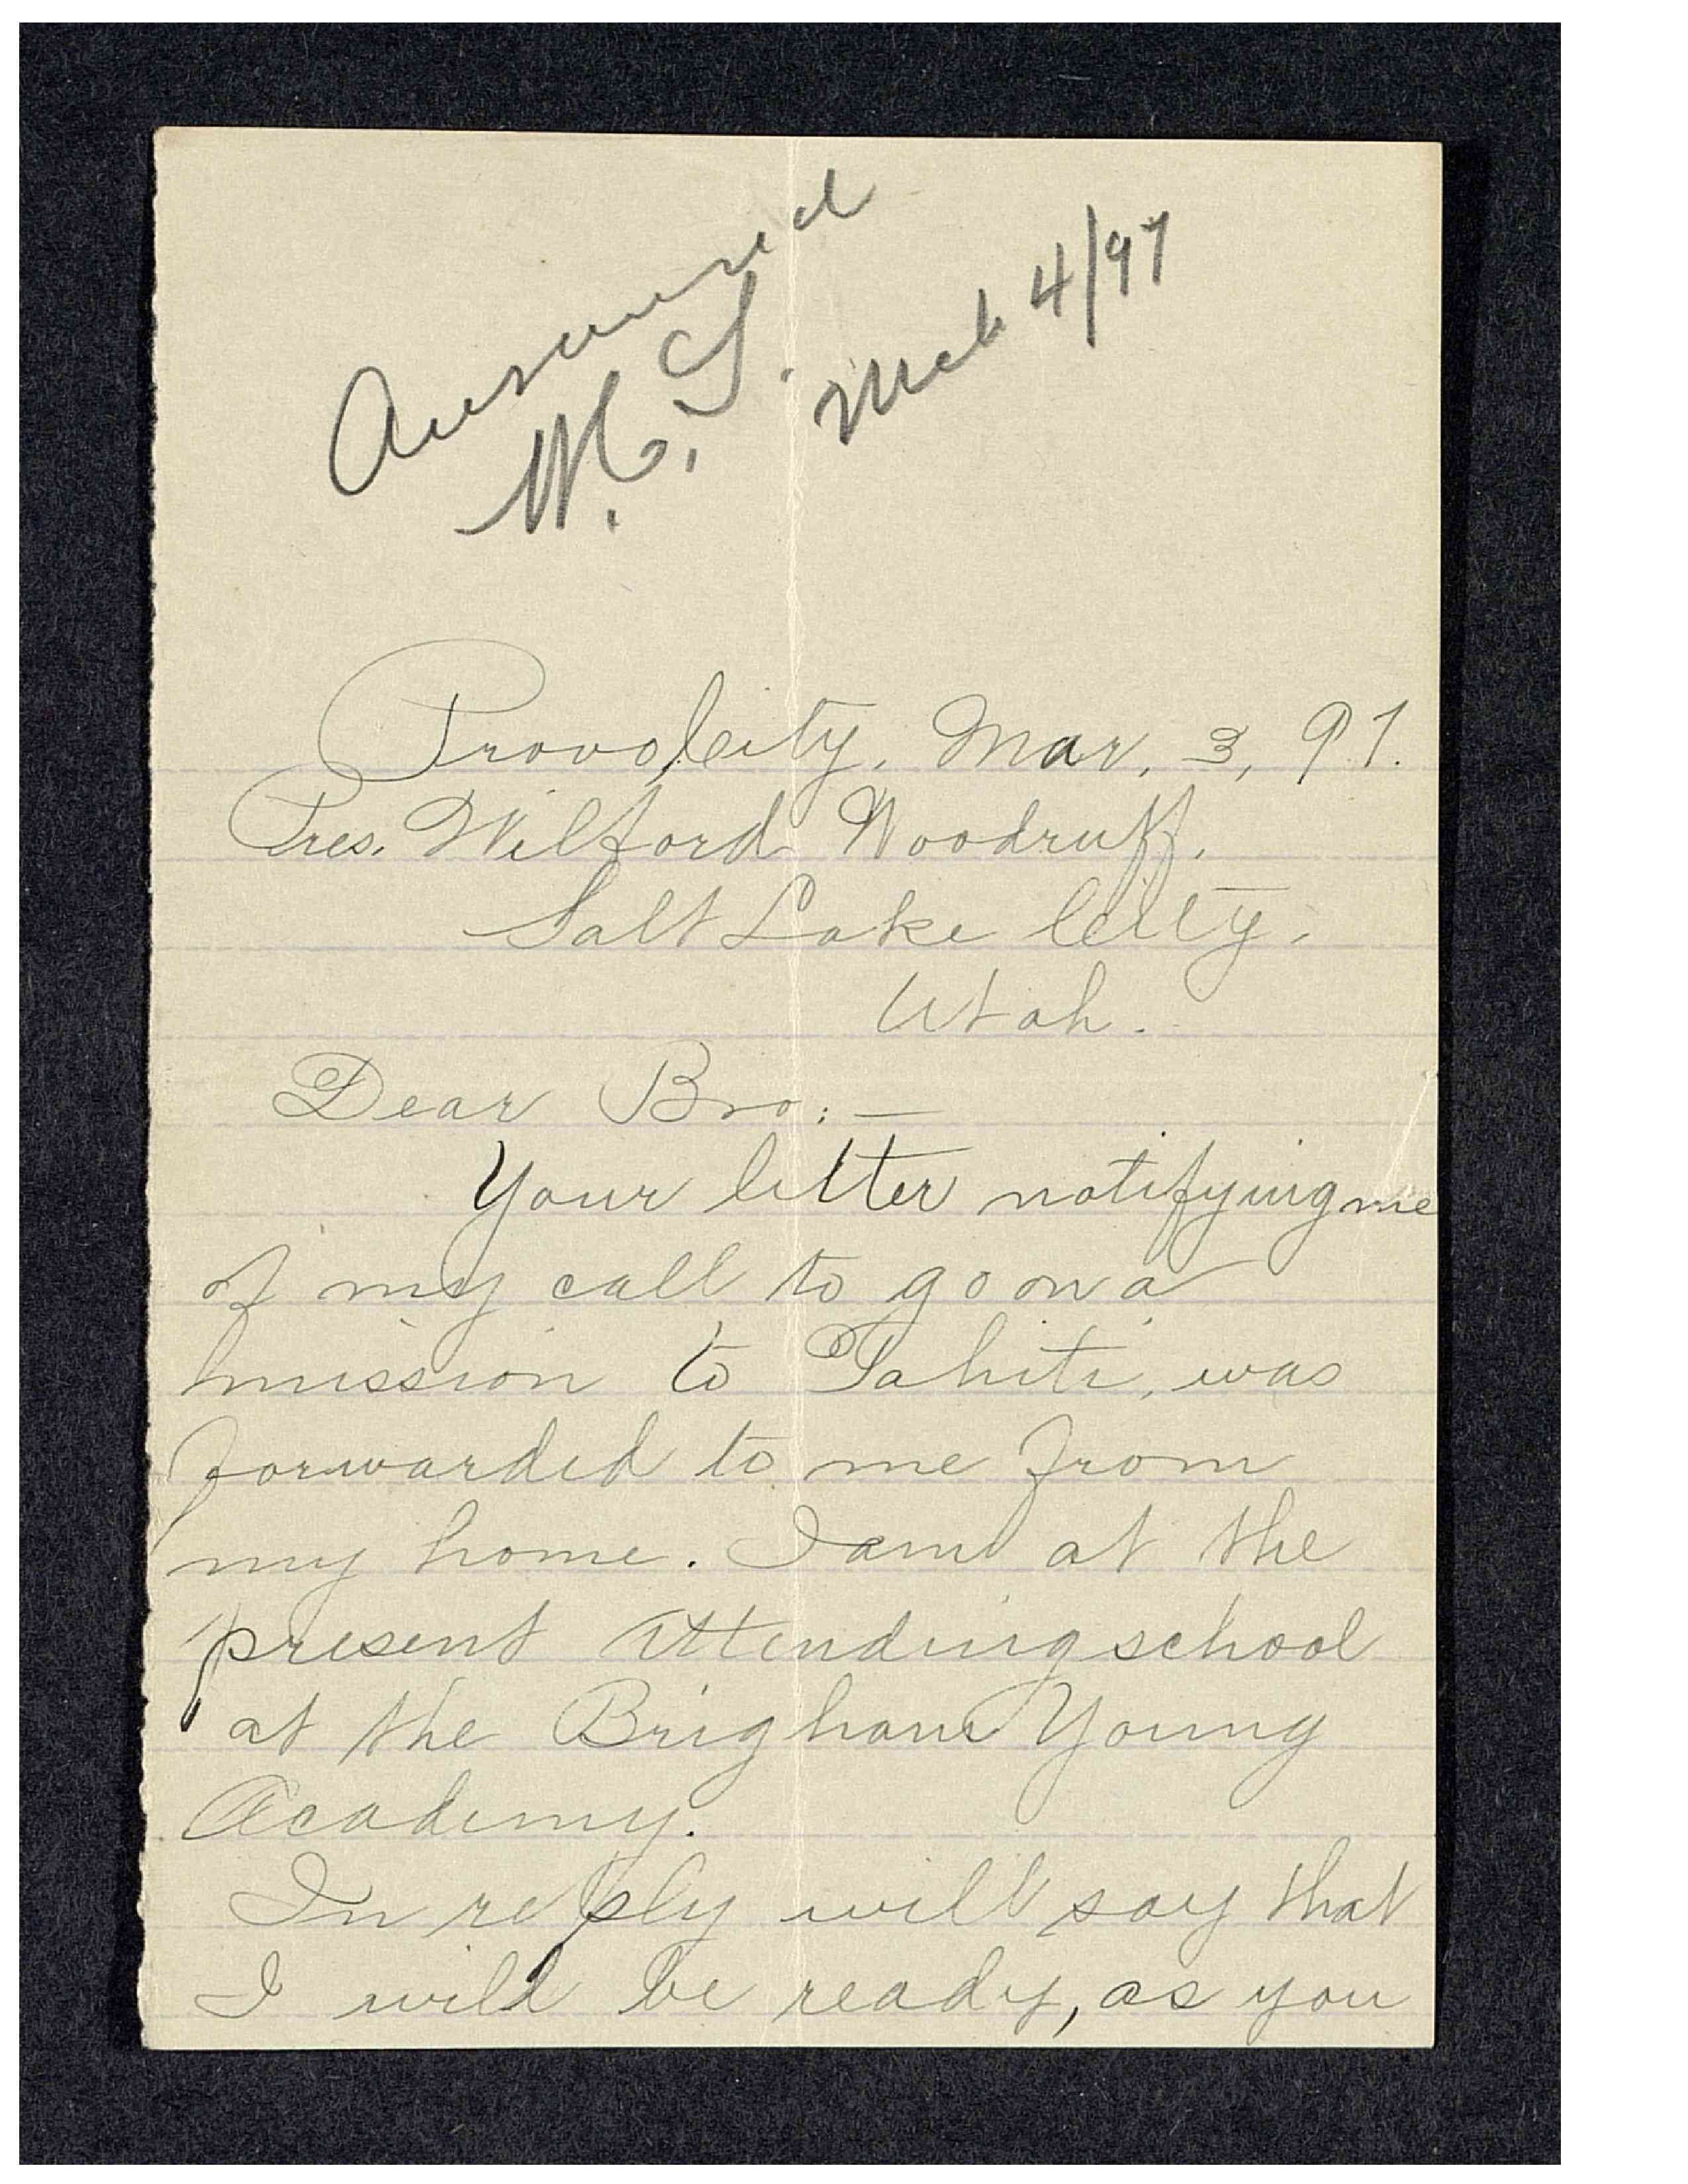 Answered
Mch 4/97
Provo City, Mar. 3, 97.
Pres. Wilford Woodruff.
Salt Lake City,
Utah.
Dear Bro: —
Your letter notifying me
of my call to go on a
mission to Tahiti, was
forwarded to me from
my home. I am at the
present attending school
at the Brigham Young
Academy.
In reply will say that
I will be ready, as you